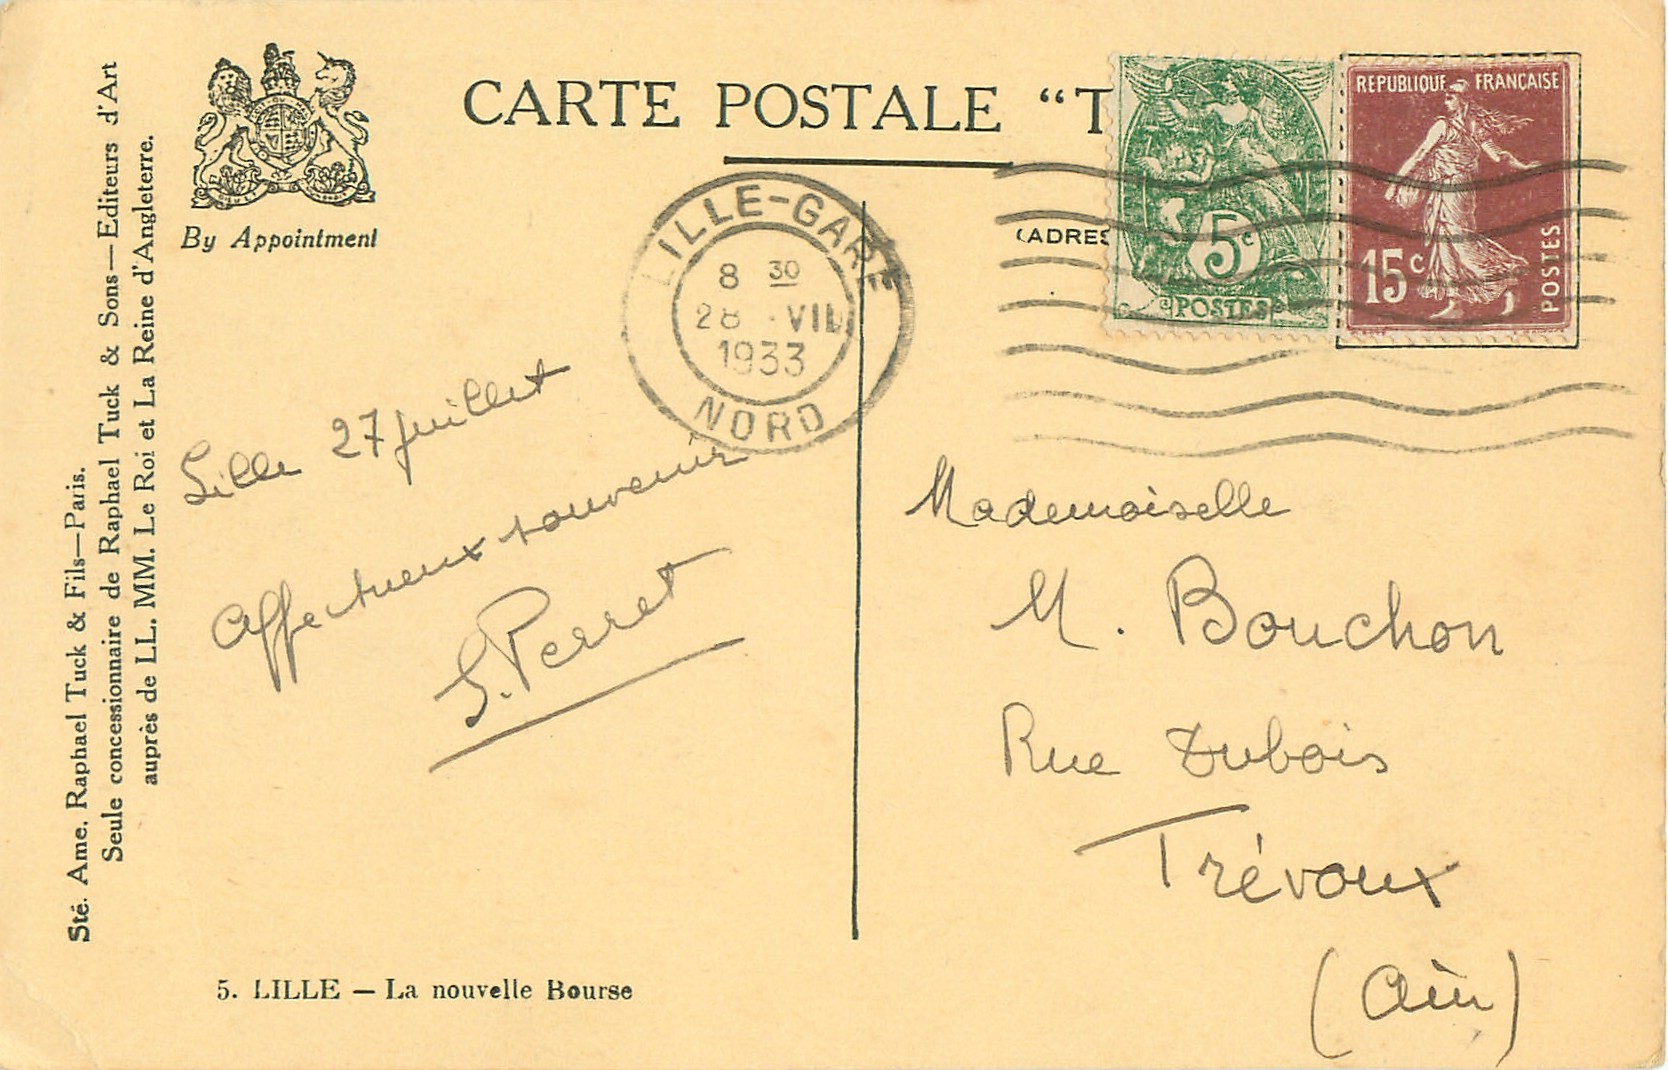 CARTE POSTALE “T
By Appointment
Sté. Ame. Raphael Tuck & Fils—Paris.
Seule concessionnaire de Raphael Tuck & Sons—Editeurs d'Art
auprès de LL. MM. Le Roi et La Reine d'Angleterre.
(ADRES
5c
POSTES
REPUBLIQUE FRANÇAISE
15c
POSTES
LILLE-GARE
8 30
28 VII
1933
NORD
Lille 27 juillet
Affectueux souvenir
S. Perret
Mademoiselle
M. Bouchon
Rue Dubois
Trévoux
(Ain)
5. LILLE — La nouvelle Bourse